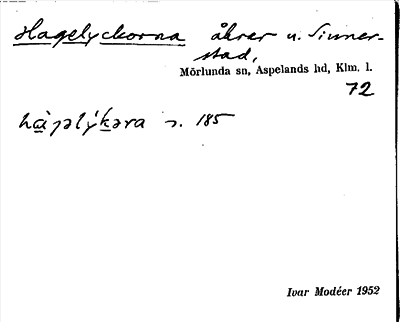 Hagelyckorna åkrer u. Sinner-
stad,
Mörlunda sn, Aspelands hd, Klm. l.
72
s. 185
Ivar Modéer 1952